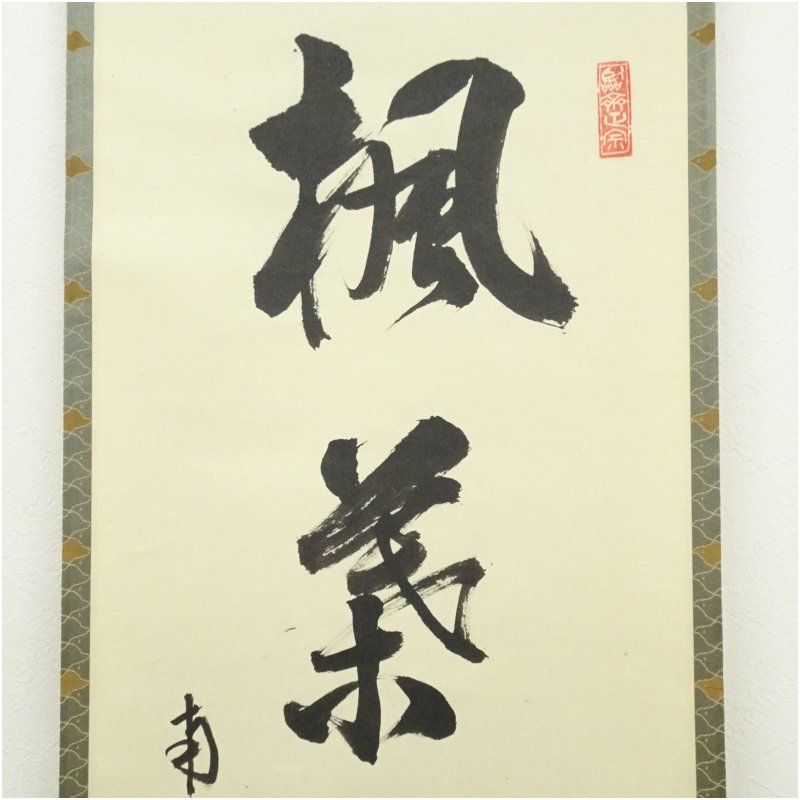 楓葉
南